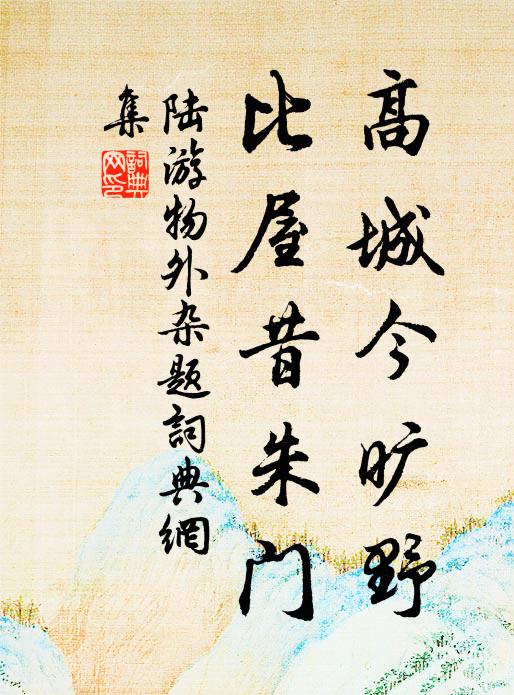 高城今旷野
比屋昔朱门
陆游物外杂题詞典網
集
詞典網印